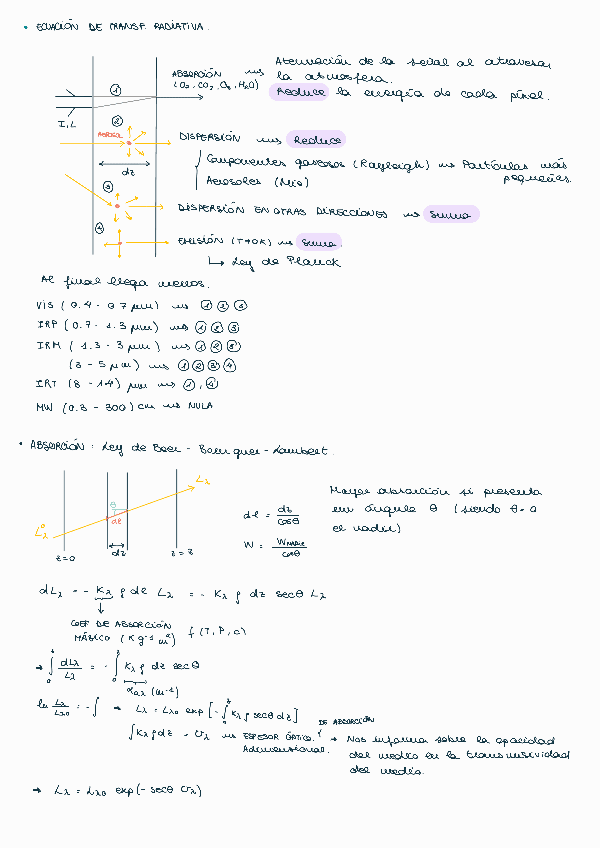 • ECUACIÓN DE TRANSF. RADIATIVA.
ABSORCIÓN
(O₂, CO₂, O₃, H₂O)
Atenuación de la señal al atravesar
la atmosfera.
Reduce la energía de cada píxel.
I, L
①
②
AEROSOL
dz
③
④
DISPERSIÓN Reduce
Componentes gaseosos (Rayleigh) Partículas más
pequeñas.
Aerosoles (Mie)
DISPERSIÓN EN OTRAS DIRECCIONES Suma
EMISIÓN (T≠0K) Suma.
↳ Ley de Planck
Al final llega menos.
VIS (0.4 - 0.7 μm) ① ② ③
IRP (0.7 - 1.3 μm) ① ② ③
IRM (1.3 - 3 μm) ① ② ③
(3 - 5 μm) ① ② ③ ④
IRT (8 - 14) μm ①, ④
MW (0.3 - 300) cm NULA
• ABSORCIÓN: Ley de Beer - Bourguer - Lambert.
Lλ
θ
dl
L⁰λ
z=0
dz
z=z
dl = dz / cosθ
W = / cosθ
Mayor absorción si presenta
un ángulo θ (siendo θ=0
el nadir)
dLλ = - Kλ ρ dl Lλ = - Kλ ρ dz secθ Lλ
↓
COEF DE ABSORCIÓN
MÁSICO (Kg⁻¹ m²) f (T, P, c)
→ ∫₀ dLλ / Lλ = - ∫₀ Kλ ρ dz secθ
αaλ (m⁻¹)
ln Lλ / Lλ0 = -∫ → Lλ = Lλ0 exp [-∫₀ Kλ ρ secθ dz]
∫Kλ ρ dz = σλ ESPESOR ÓPTICO.
DE ABSORCIÓN
Adimensional.
→ Nos informa sobre la opacidad
del medio en la transmisividad
del medio.
→ Lλ = Lλ0 exp (- secθ σλ)